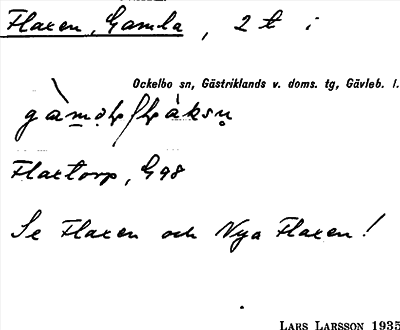 Flaxen, Gamla, 2 t i
Ockelbo sn, Gästriklands v. doms. tg, Gävleb. l.
Flaxtorp, G98
Se Flaxen och Nya Flaxen!
LARS LARSSON 1935